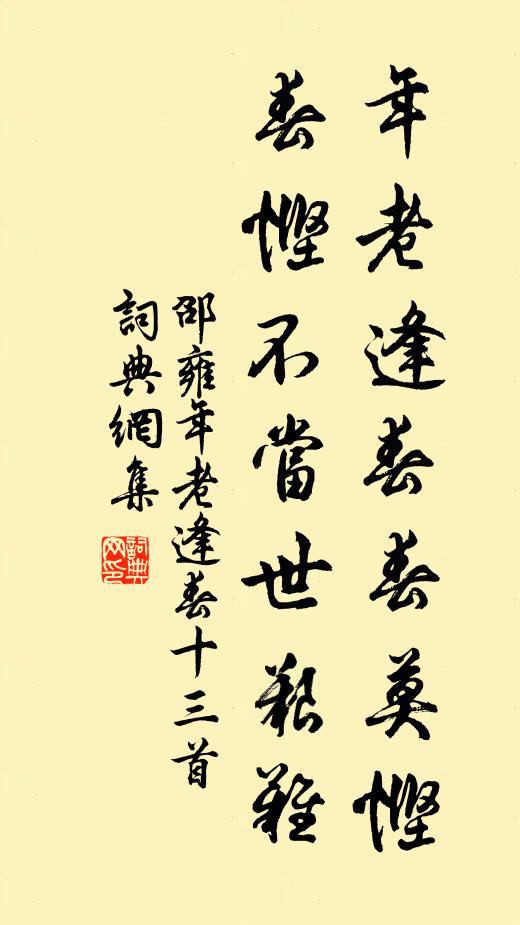 年老逢春春莫慳
春慳不當世艱難
邵雍年老逢春十三首
詞典網集
詞典网印